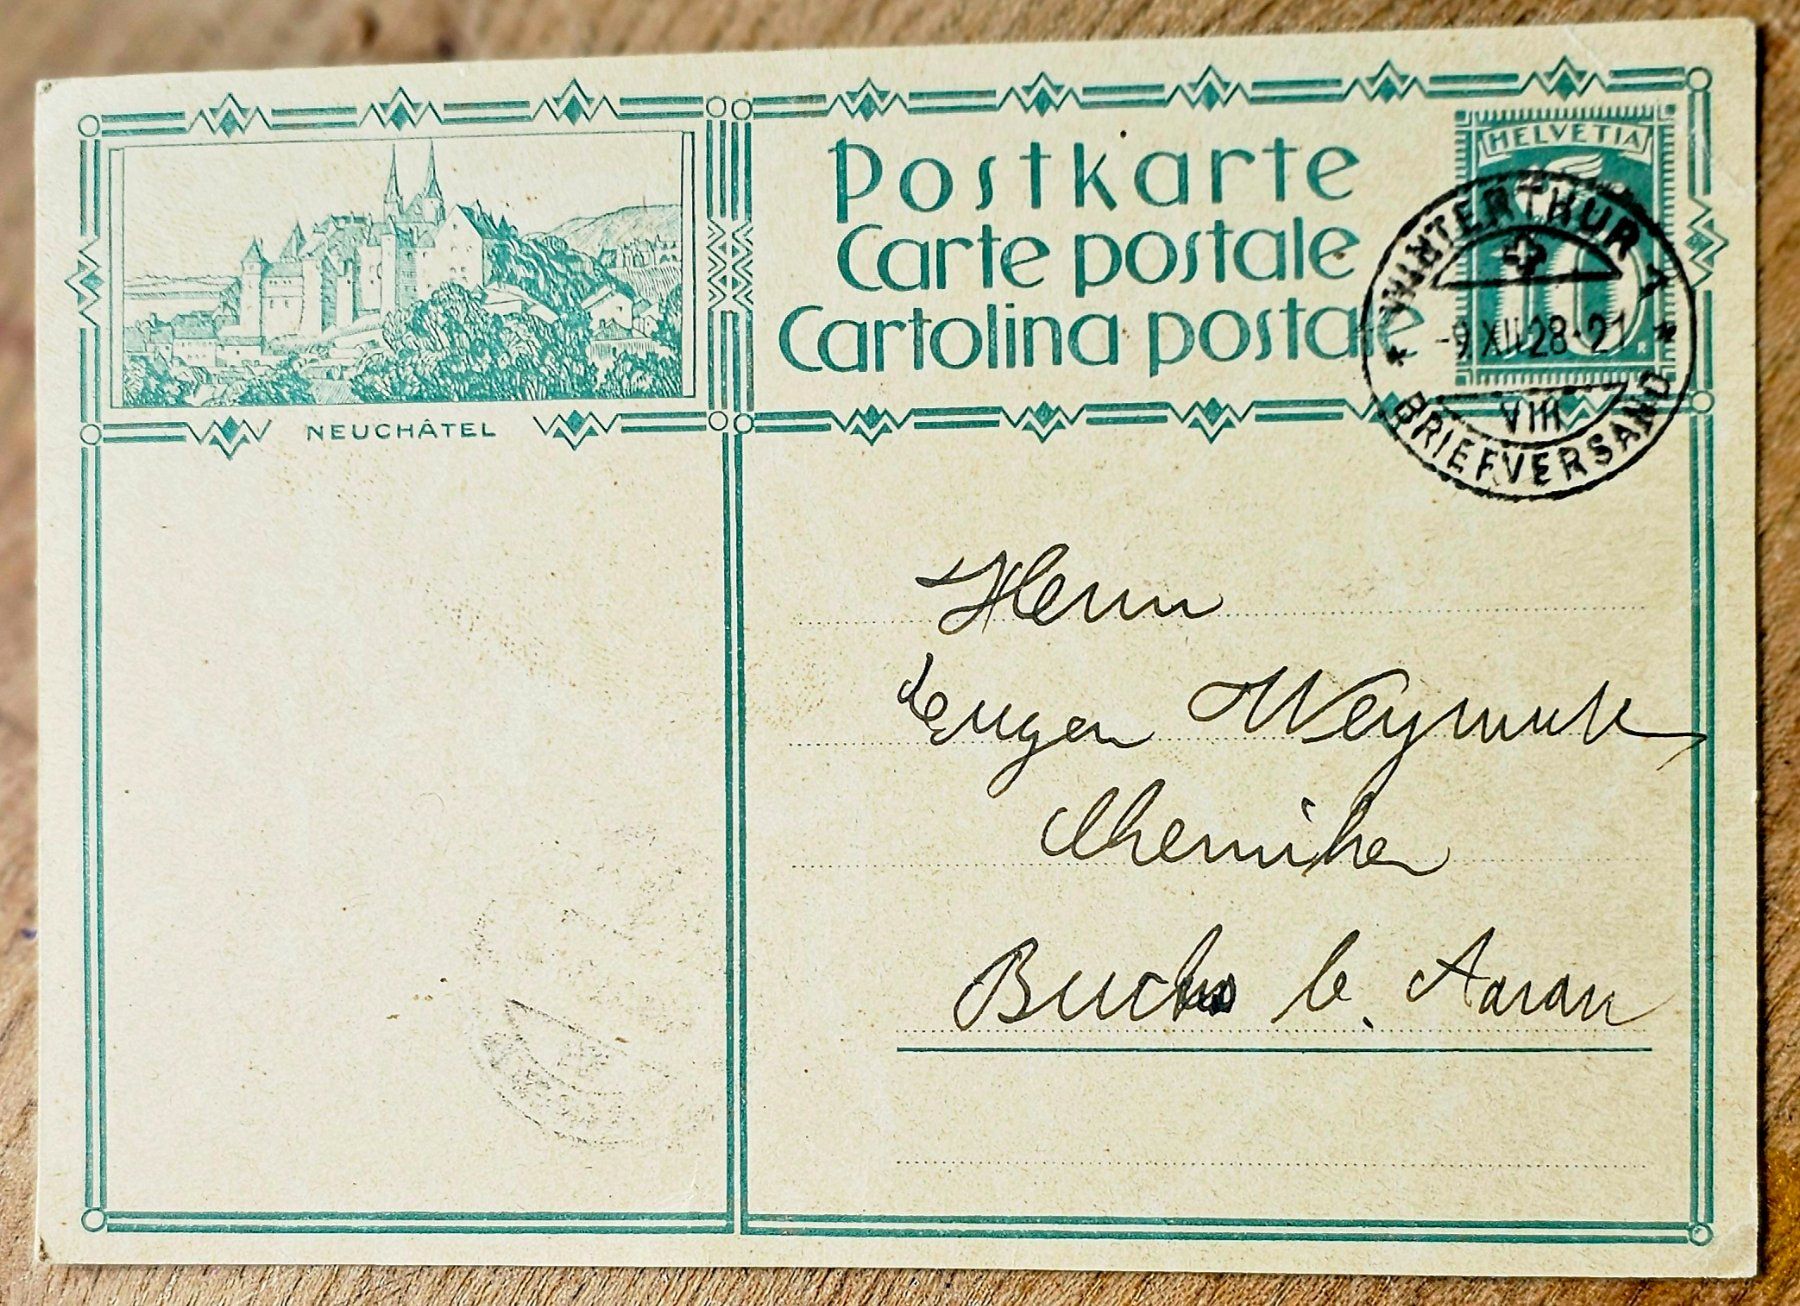 NEUCHÂTEL
Postkarte
Carte postale
Cartolina postale
HELVETIA
10
WINTERTHUR 1
-9.XII.28-21
VIII
BRIEFVERSAND
Herrn
Eugen
Chemiker
Buchs b. Aarau